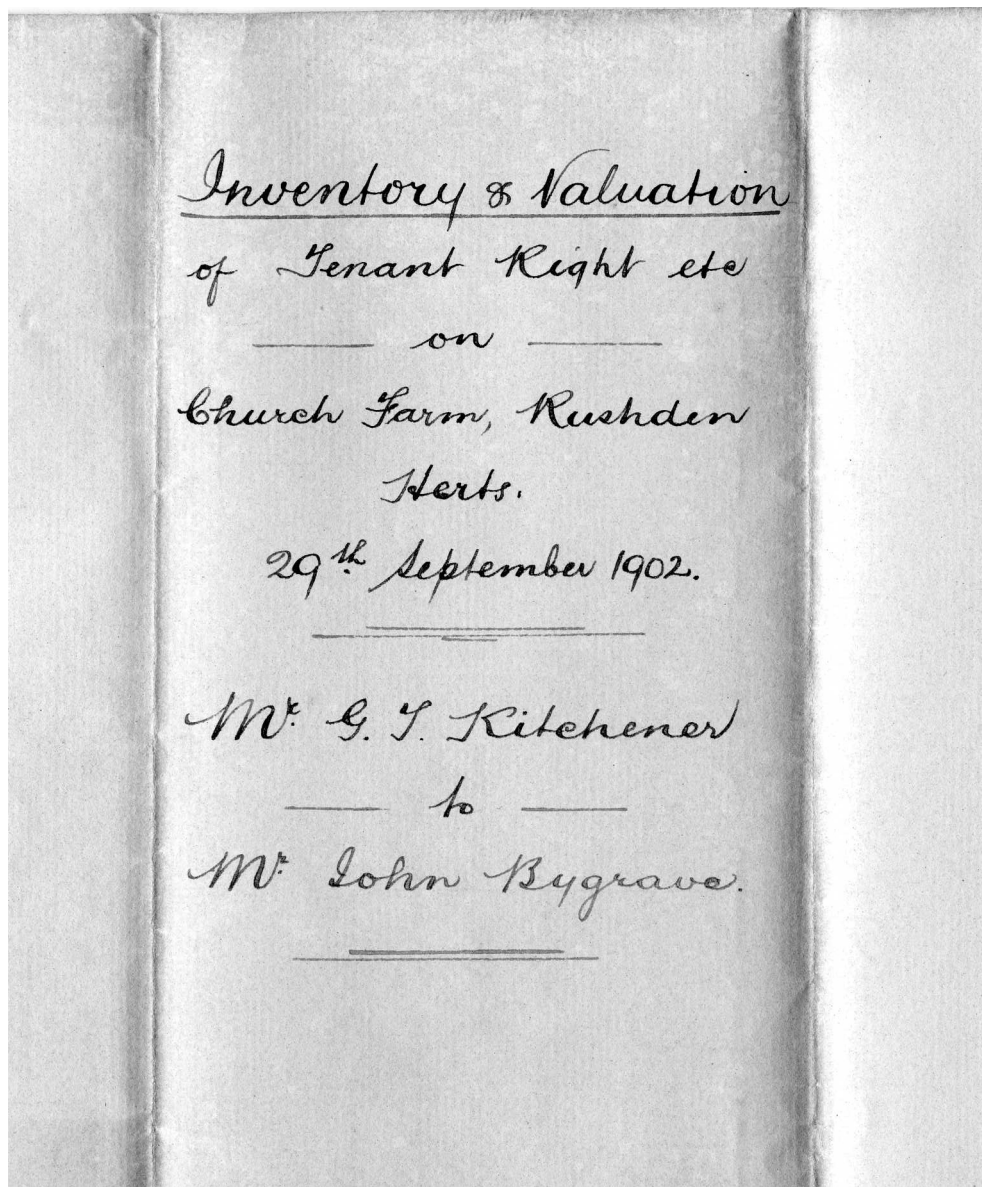 Inventory & Valuation
of Tenant Right etc
on
Church Farm, Rushden
Herts.
29th September 1902.
Mr. G. T. Kitchener
to
Mr. John Bygrave.